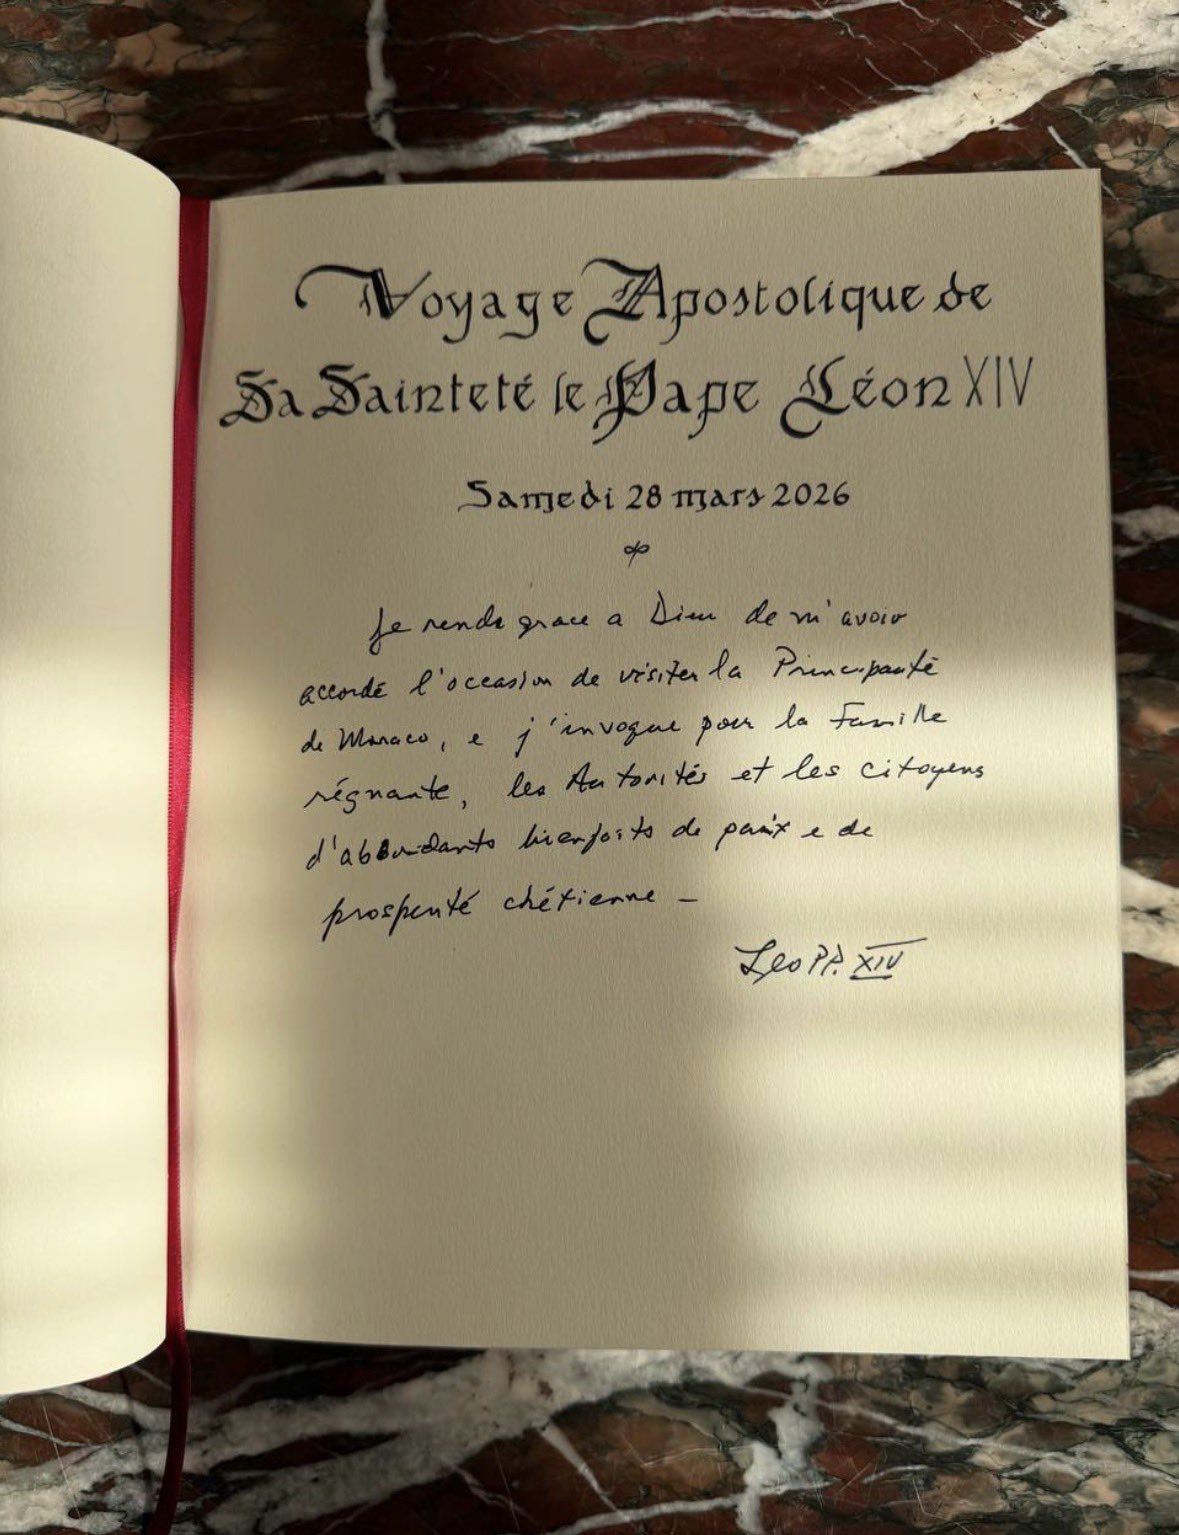 Voyage Apostolique de
Sa Sainteté le Pape Léon XIV
Samedi 28 mars 2026
Je rends grace a Dieu de m'avoir
accordé l'occasion de visiter la Principauté
de Monaco, e j'invoque pour la Famille
régnante, les Autorités et les citoyens
d'abbondants bienfaits de paix e de
prosperité chétienne –
Leo PP. XIV